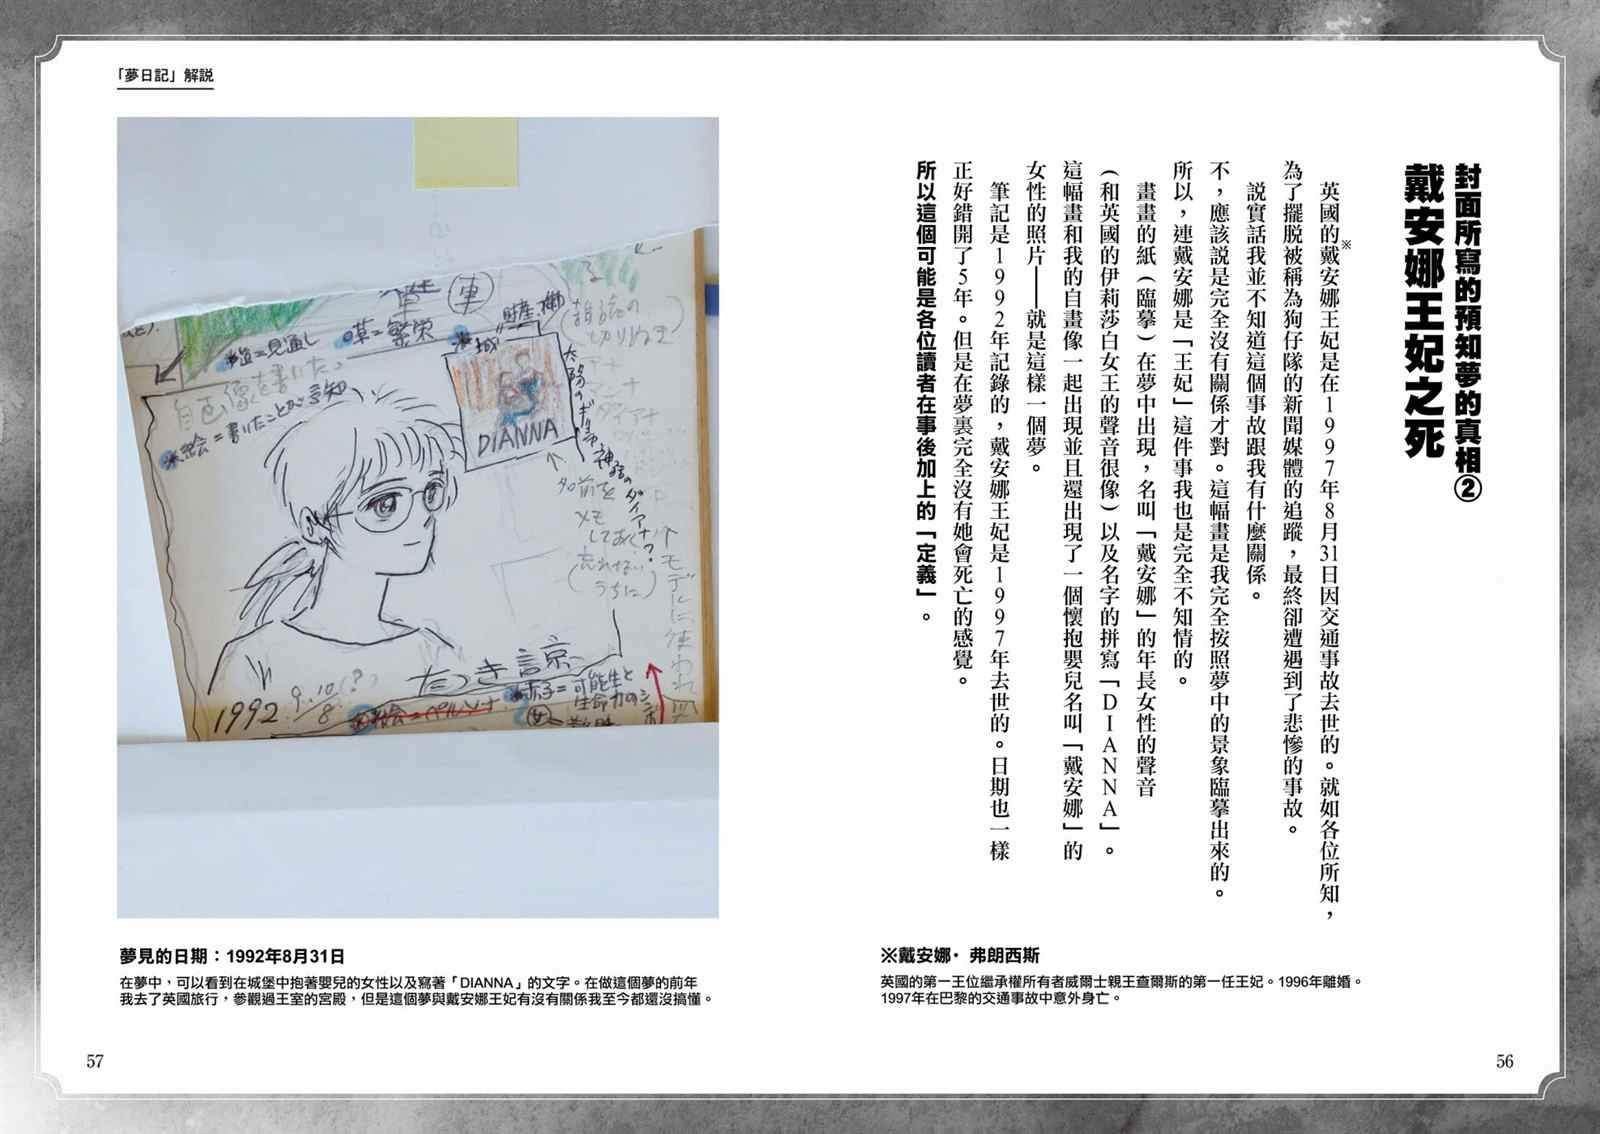 封面所寫的預知夢的真相②
戴安娜王妃之死
英國的戴安娜王妃是在1997年8月31日因交通事故去世的。就如各位所知，
※
為了擺脫被稱為狗仔隊的新聞媒體的追蹤，最終卻遭遇到了悲慘的事故。
説實話我並不知道這個事故跟我有什麼關係。
不，應該説是完全沒有關係才對。這幅畫是我完全按照夢中的景象臨摹出來的。
所以，連戴安娜是「王妃」這件事我也是完全不知情的。
畫畫的紙（臨摹）在夢中出現，名叫「戴安娜」的年長女性的聲音
（和英國的伊莉莎白女王的聲音很像）以及名字的拼寫「DIANNA」。
這幅畫和我的自畫像一起出現並且還出現了一個懷抱嬰兒名叫「戴安娜」的
女性的照片——就是這樣一個夢。
筆記是1992年記錄的，戴安娜王妃是1997年去世的。日期也一樣
正好錯開了5年。但是在夢裏完全沒有她會死亡的感覺。
所以這個可能是各位讀者在事後加上的「定義」。
※戴安娜·弗朗西斯
英國的第一王位繼承權所有者威爾士親王查爾斯的第一任王妃。1996年離婚。
1997年在巴黎的交通事故中意外身亡。
56
「夢日記」解説
車
草=繁栄
道=見通し
財産、
城
自画像を書いた
※絵=書いたことが認知
DIANNA
太陽のギリシャ神話のダイアナ?
名前を
メモ
しておく
(忘れない
うちに)
モデルに使われ
たつき諒
1992 9.10/8(?)
赤子=可能生と
生命力のシンボル
夢見的日期：1992年8月31日
在夢中，可以看到在城堡中抱著嬰兒的女性以及寫著「DIANNA」的文字。在做這個夢的前年
我去了英國旅行，參觀過王室的宮殿，但是這個夢與戴安娜王妃有沒有關係我至今都還沒搞懂。
57